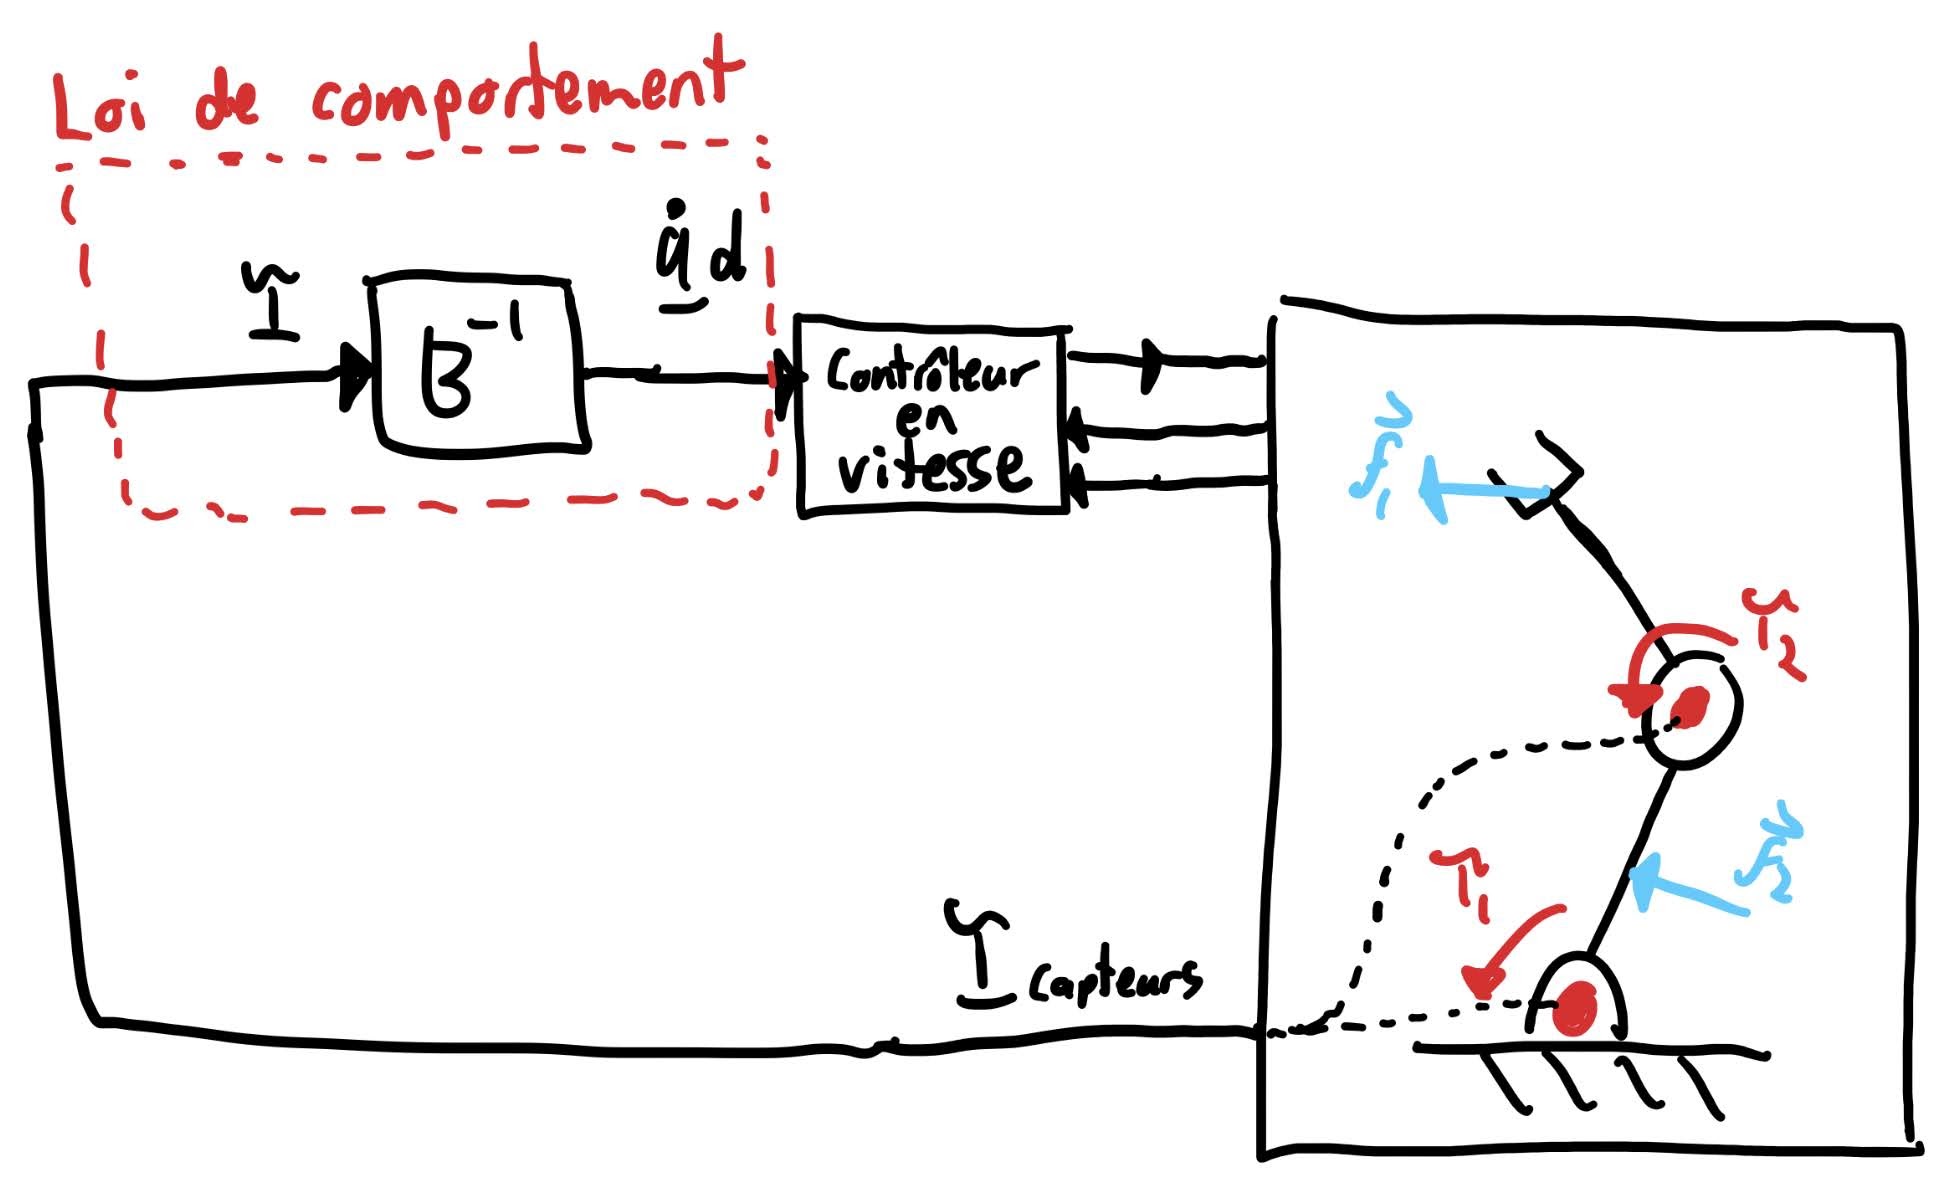 Loi de comportement
τ
q̇d
B⁻¹
Contrôleur
en
vitesse
f⃗₁
τ₂
f⃗₂
τ₁
τ capteurs